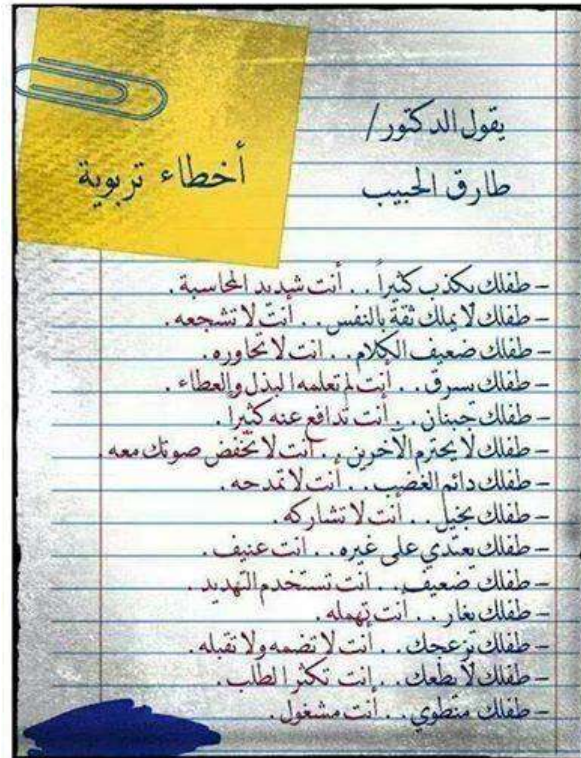 يقول الدكتور/
طارق الحبيب
أخطاء تربوية
- طفلك يكذب كثيراً . . أنت شديد المحاسبة .
- طفلك لا يملك ثقة بالنفس . . أنت لا تشجعه .
- طفلك ضعيف الكلام . . انت لا تحاوره .
- طفلك يسرق . . أنت لم تعلمه البذل والعطاء .
- طفلك جبنان . . أنت تدافع عنه كثيراً .
- طفلك لا يحترم الآخرين . . أنت لا تخفض صوتك معه .
- طفلك دائم الغضب . . أنت لا تمدحه .
- طفلك بخيل . . أنت لا تشاركه .
- طفلك يعتدي على غيره . . انت عنيف .
- طفلك ضعيف . . انت تستخدم التهديد .
- طفلك يغار . . أنت تهمله .
- طفلك يزعجك . . أنت لا تضمه ولا تقبله .
- طفلك لا يطعك . . إنت تكثر الطلب .
- طفلك منطوي . . أنت مشغول .